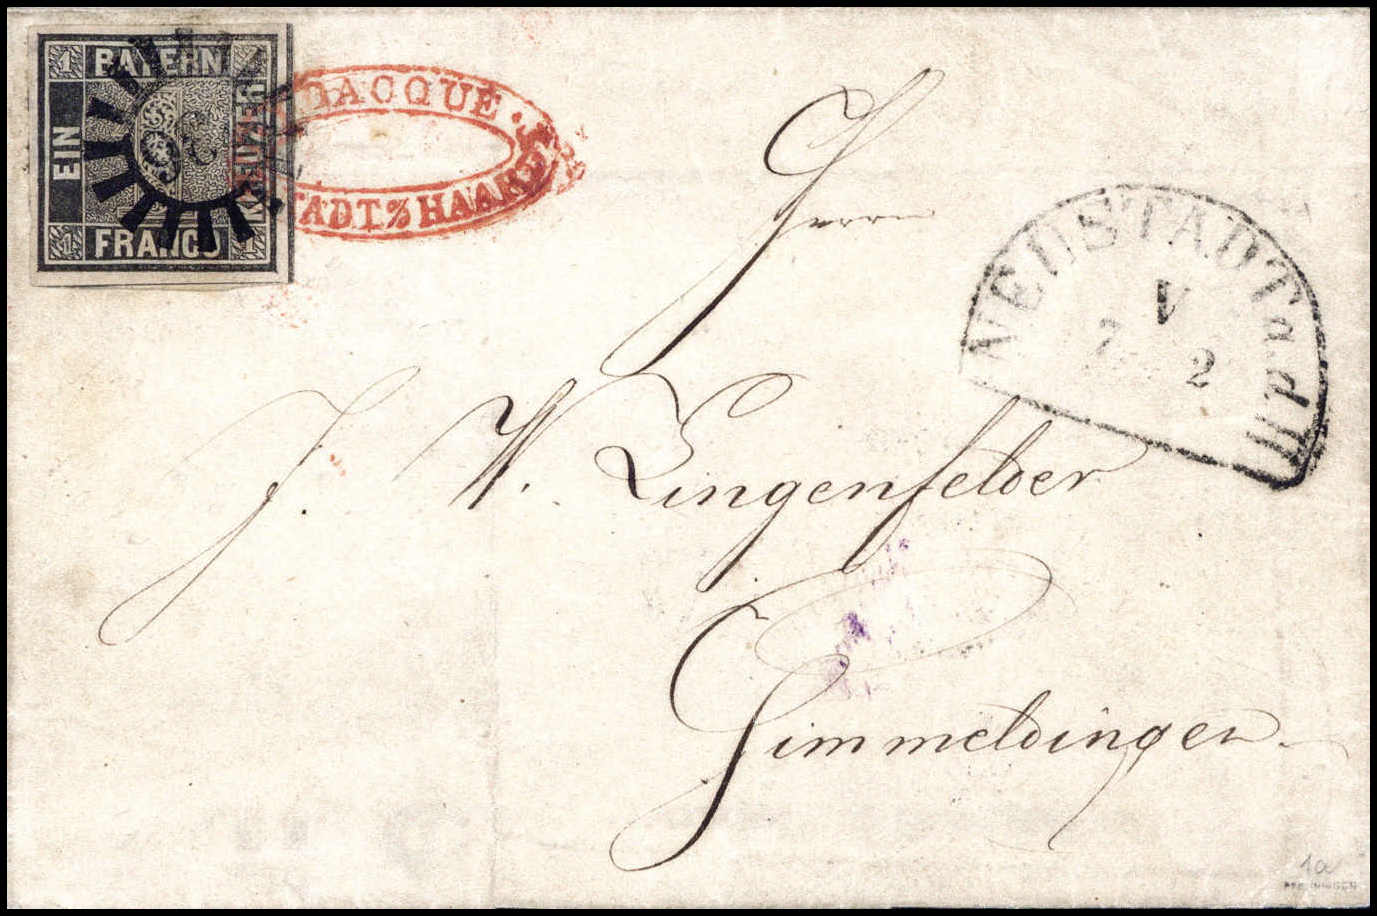 1 BAYERN
EIN
KREUZER
1 FRANCO 1
DACQUÉ
STADT % HAARDT
Herrn
NEUSTADT a/H
V
7 2
J. W. Lingenfelder
Gimmeldingen.
1a
PFENNINGER